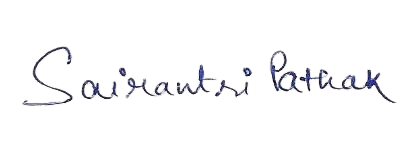 Sairantri Pathak